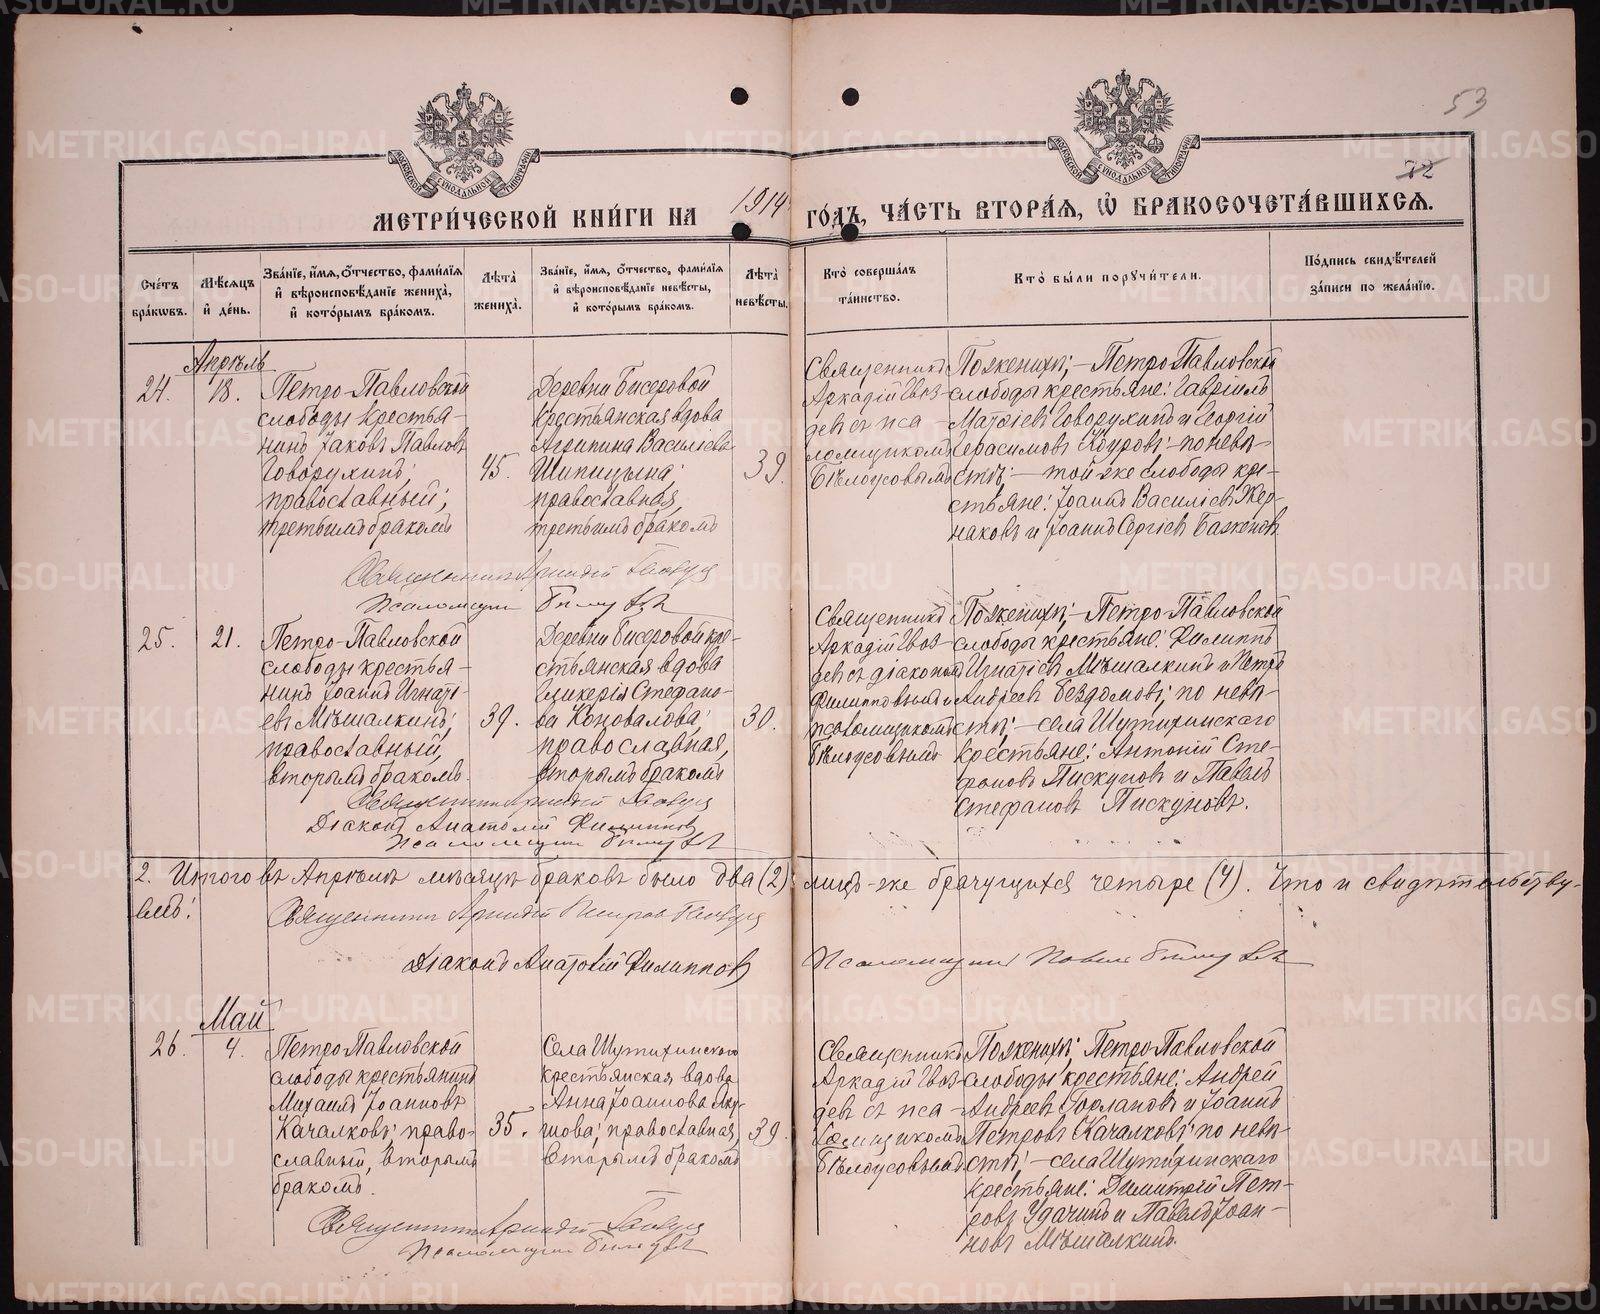 53
72
МЕТРИЧЕСКОЙ КНИГИ НА 1914 ГОДЪ, ЧАСТЬ ВТОРАЯ, Ѡ БРАКОСОЧЕТАВШИХСЯ.
Счетъ браковъ.
Мѣсяцъ и день.
Званіе, имя, отчество, фамилія и вѣроисповѣданіе жениха, и которымъ бракомъ.
Лѣта жениха.
Званіе, имя, отчество, фамилія и вѣроисповѣданіе невѣсты, и которымъ бракомъ.
Лѣта невѣсты.
Кто совершалъ таинство.
Кто были поручители.
Подпись свидѣтелей записи по желанію.
Апрѣль
24.
18.
Петро-Павловской
слободы крестья-
нинъ Іаковъ Павловъ
Говорухинъ,
православный,
третьимъ бракомъ
45.
Деревни Бисеровой
крестьянская вдова
Агрипина Васильева
Шипицына,
православная,
третьимъ бракомъ
39.
Священникъ
Аркадій Гвоз-
девъ съ пса-
ломщикомъ
Бѣлоусовымъ
По женихѣ; - Петро-Павловской
слободы крестьяне: Гавріилъ
Матѳіевъ Говорухинъ и Георгій
Герасимовъ; по невѣ-
стѣ; - той-же слободы кре-
стьяне: Іоаннъ Василіевъ Жер-
наковъ и Іоаннъ Сергіевъ Баженовъ.
Священникъ Аркадій Гвоздевъ
Псаломщикъ Бѣлоусовъ
25.
21.
Петро-Павловской
слободы крестья-
нинъ Іоаннъ Игнаті-
евъ Мѣшалкинъ,
православный,
вторымъ бракомъ.
39.
Деревни Бисеровой кре-
стьянская вдова
Гликерія Стефано-
ва Коновалова,
православная,
вторымъ бракомъ
30.
Священникъ
Аркадій Гвоз-
девъ съ діакономъ
Филипповымъ и
псаломщикомъ
Бѣлоусовымъ
По женихѣ; - Петро-Павловской
слободы крестьяне: Филиппъ
Игнатіевъ Мѣшалкинъ и Петръ
Андреевъ Бездомовъ; по невѣ-
стѣ; - села Шутихинскаго
крестьяне: Антоній Сте-
фановъ Пискуновъ и Павелъ
Стефановъ Пискуновъ.
Священникъ Аркадій Гвоздевъ
Діаконъ Анатолій Филипповъ
Псаломщикъ Бѣлоусовъ
2. Итого въ Апрѣлѣ мѣсяцѣ браковъ было два (2) лицъ-же брачущихся четыре (4). Что и свидѣтельству-
емъ:
Священникъ Аркадій Петровъ Гвоздевъ
Діаконъ Анатолій Филипповъ
Псаломщикъ Павелъ Бѣлоусовъ
Май
26.
4.
Петро-Павловской
слободы крестьянинъ
Михаилъ Іоанновъ
Качалковъ; право-
славный, вторымъ
бракомъ.
35.
Села Шутихинскаго
крестьянская вдова
Анна Іоаннова Яку-
шова; православная,
вторымъ бракомъ
39.
Священникъ
Аркадій Гвоз-
девъ съ пса-
ломщикомъ
Бѣлоусовымъ
По женихѣ; Петро-Павловской
слободы крестьяне: Андрей
Андреевъ Горлановъ и Іоаннъ
Петровъ Качалковъ; по невѣ-
стѣ; - села Шутихинскаго
крестьяне: Димитрій Пет-
ровъ Удачинъ и Павелъ Іоан-
новъ Мѣшалкинъ.
Священникъ Аркадій Гвоздевъ
Псаломщикъ Бѣлоусовъ
METRIKI.GASO-URAL.RU